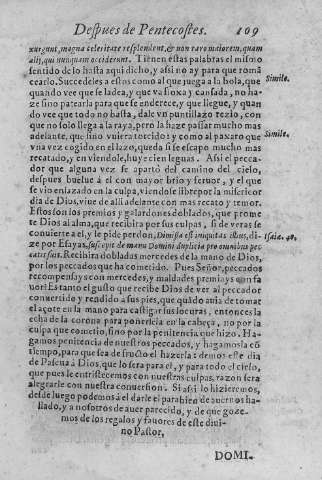 Despues de Pentecostes. 109
xurgunt, magna celeritate resplendent, & non raro maiorem, quam
alij, qui nunquam occiderunt. Tienen estas palabras el mismo
sentido de lo hasta aqui dicho, y assi no ay para que roma
cearlo. Succedeles a estos como al que juega a la bola, que
Simile.
quando vee que se ladea, y que va floxa y cansada, no ha-
ze sino patearla para que se enderece, y que llegue, y quan
do vee que todo no basta, dale vn puntillazo rezio, con
que no solo llega a la raya, pero la haze passar mucho mas
adelante, que sino vuiera torcido y como al paxaro que
Simile.
vna vez cogido en el lazo, queda si se escapo mucho mas
recatado, y en viendole, huye cien leguas. Assi el pecca-
dor que alguna vez se apartó del camino del cielo,
despues buelue à el con mayor brio y feruor, y el que
se vio enlazado en la culpa, viendose libre por la misericor
dia de Dios, viue de alli adelante con mas recato y temor.
Estos son los premios y galardones doblados, que prome
te Dios al alma, que recibira por sus culpas, si de veras se
conuierte a el, y le pide perdon, Dimissa est iniquitas illius, di-
Isaie. 40.
ze por Esayas, suscepit de manu Domini duplicia pro omnibus pec
catis suis. Recibira dobladas mercedes de la mano de Dios,
por los peccados que ha cometido. Pues Señor, peccados
recompensays con mercedes, y maldades premiays con fa
uor? Es tanto el gusto que recibe Dios de ver al peccador
conuertido y rendido a sus pies, que quādo auia de tomar
el açote en la mano para castigar sus locuras, entonces la
echa de la corona para ponersela en la cabeça, no por la
culpa que cometio, sino por la penitencia que hizo. Ha-
gamos penitencia de nuestros peccados, y hagamosla cō
tiempo, para que sea de fructo el hazerla: demos este dia
de Pascua à Dios, que lo sera para el, y para todo el cielo,
que pues le entristecemos con nuestras culpas, razon sera
alegrarle con nuestra conuersion. Si assi lo hizieremos,
desde luego podemos à el darle el parabien de auernos ha-
llado, y a nosotros de auer parecido, y de que goze-
mos de los regalos y fauores de este diui-
no Pastor,
DOMI-